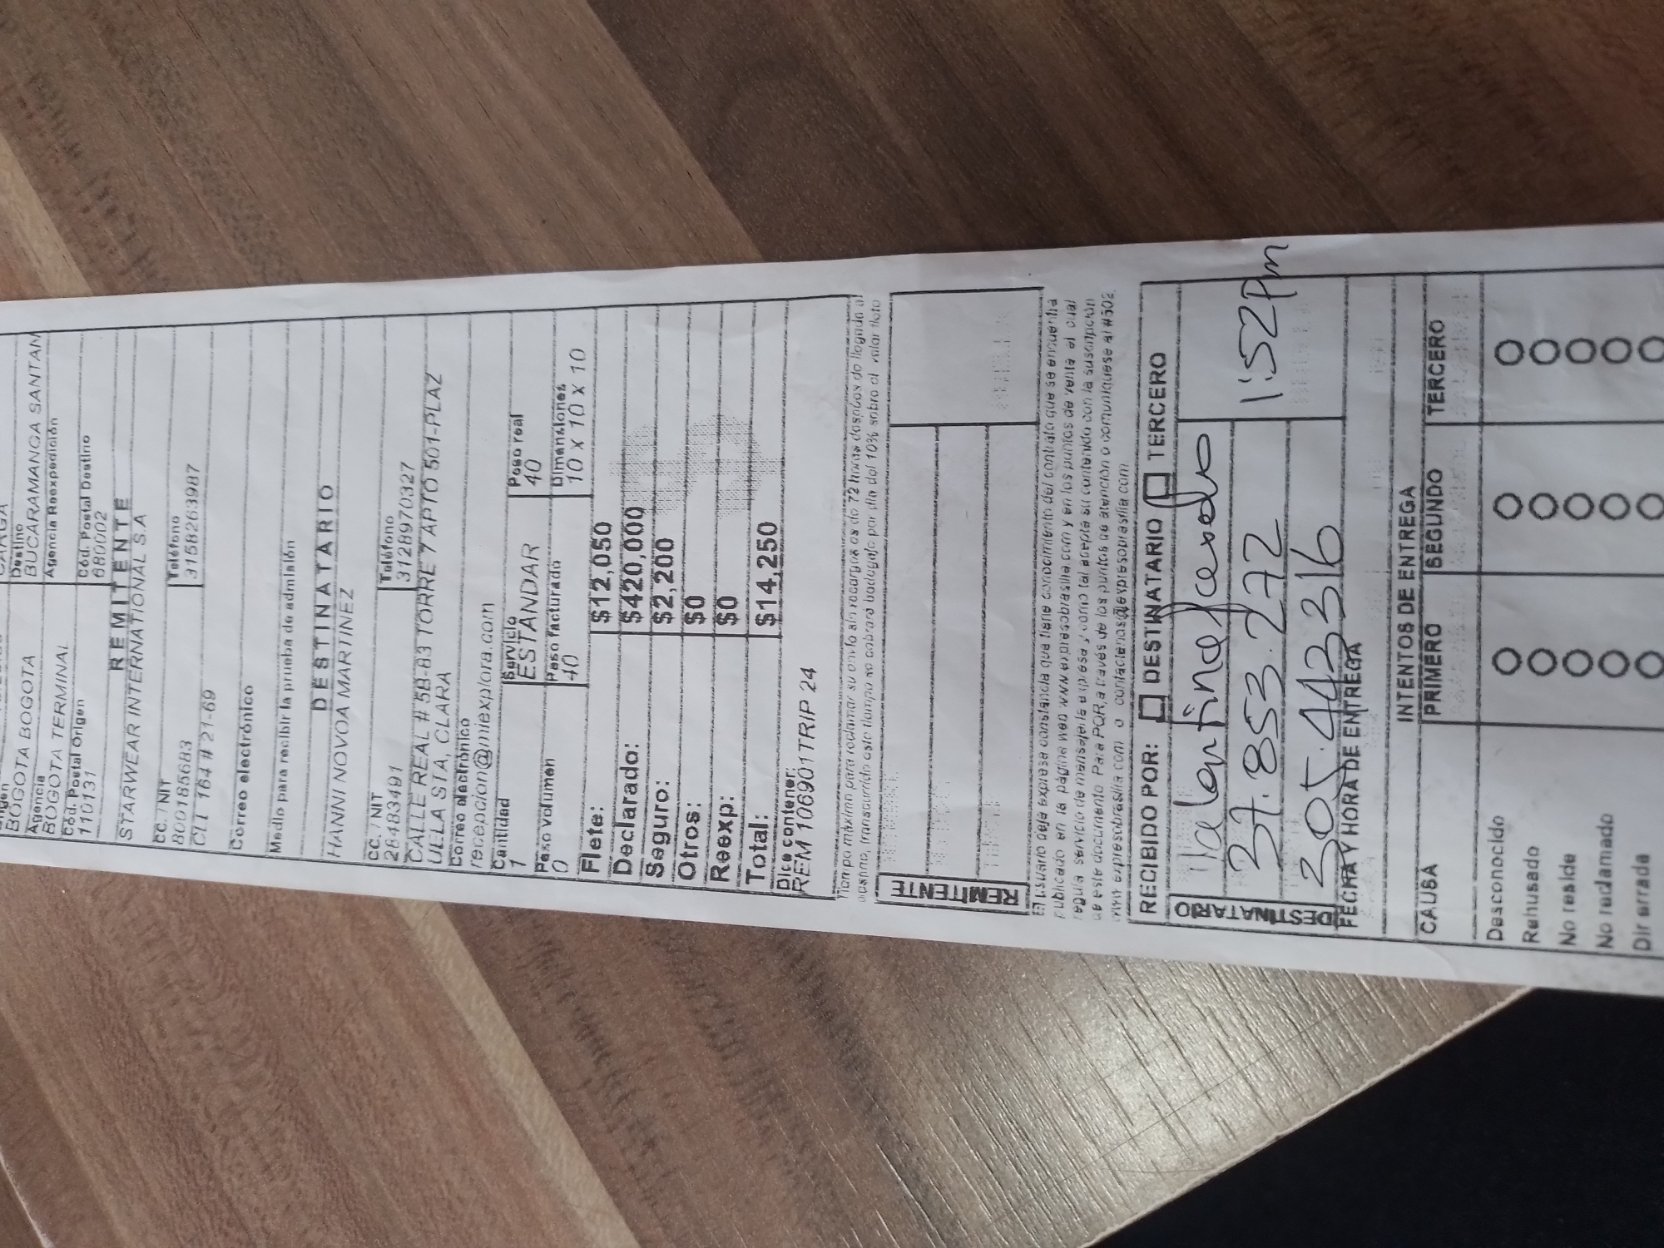 CARGA
Origen Destino
BOGOTA BOGOTA BUCARAMANGA SANTAN
Agencia Agencia Reexpedición
BOGOTA TERMINAL
Cód. Postal Origen Cód. Postal Destino
110131 680002
REMITENTE
STARWEAR INTERNATIONAL S.A
CC. / NIT Teléfono
800185683 3158263987
CLL 164 # 21-69
Correo electrónico
Medio para recibir la prueba de admisión
DESTINATARIO
HANNI NOVOA MARTINEZ
CC. / NIT Teléfono
28483491 3128970327
CALLE REAL # 5B-83 TORRE 7 APTO 501-PLAZ
UELA STA. CLARA
Correo electrónico
recepcion@miexplora.com
Cantidad Servicio Peso real
1 ESTANDAR 40
Peso volumen Peso facturado Dimensiones
0 40 10 X 10 X 10
Flete: $12,050
Declarado: $420,000
Seguro: $2,200
Otros: $0
Reexp: $0
Total: $14,250
Dice contener:
REM 106901 TRIP 24
Tiempo máximo para reclamar su envío sin recargos es de 72 horas después de llegado al
destino, transcurrido este tiempo se cobrará bodegaje por día del 10% sobre el valor flete
REMITENTE
El usuario deja expresa constancia que tiene conocimiento del contrato que se encuentra
publicado en la página web www.expresobrasilia.com y en los puntos de venta el cual
regula servicio de mensajería expresa y como tal acepta su contenido con la suscripción
de este documento. Para PQR, a través de los puntos de atención o comuníquese al #502,
www.expresobrasilia.com o contactenos@expresobrasilia.com
RECIBIDO POR: DESTINATARIO TERCERO
DESTINATARIO
37.853.272 1:52Pm
305.442316
FECHA Y HORA DE ENTREGA
INTENTOS DE ENTREGA
CAUSA PRIMERO SEGUNDO TERCERO
Desconocido
Rehusado
No reside
No reclamado
Dir errada